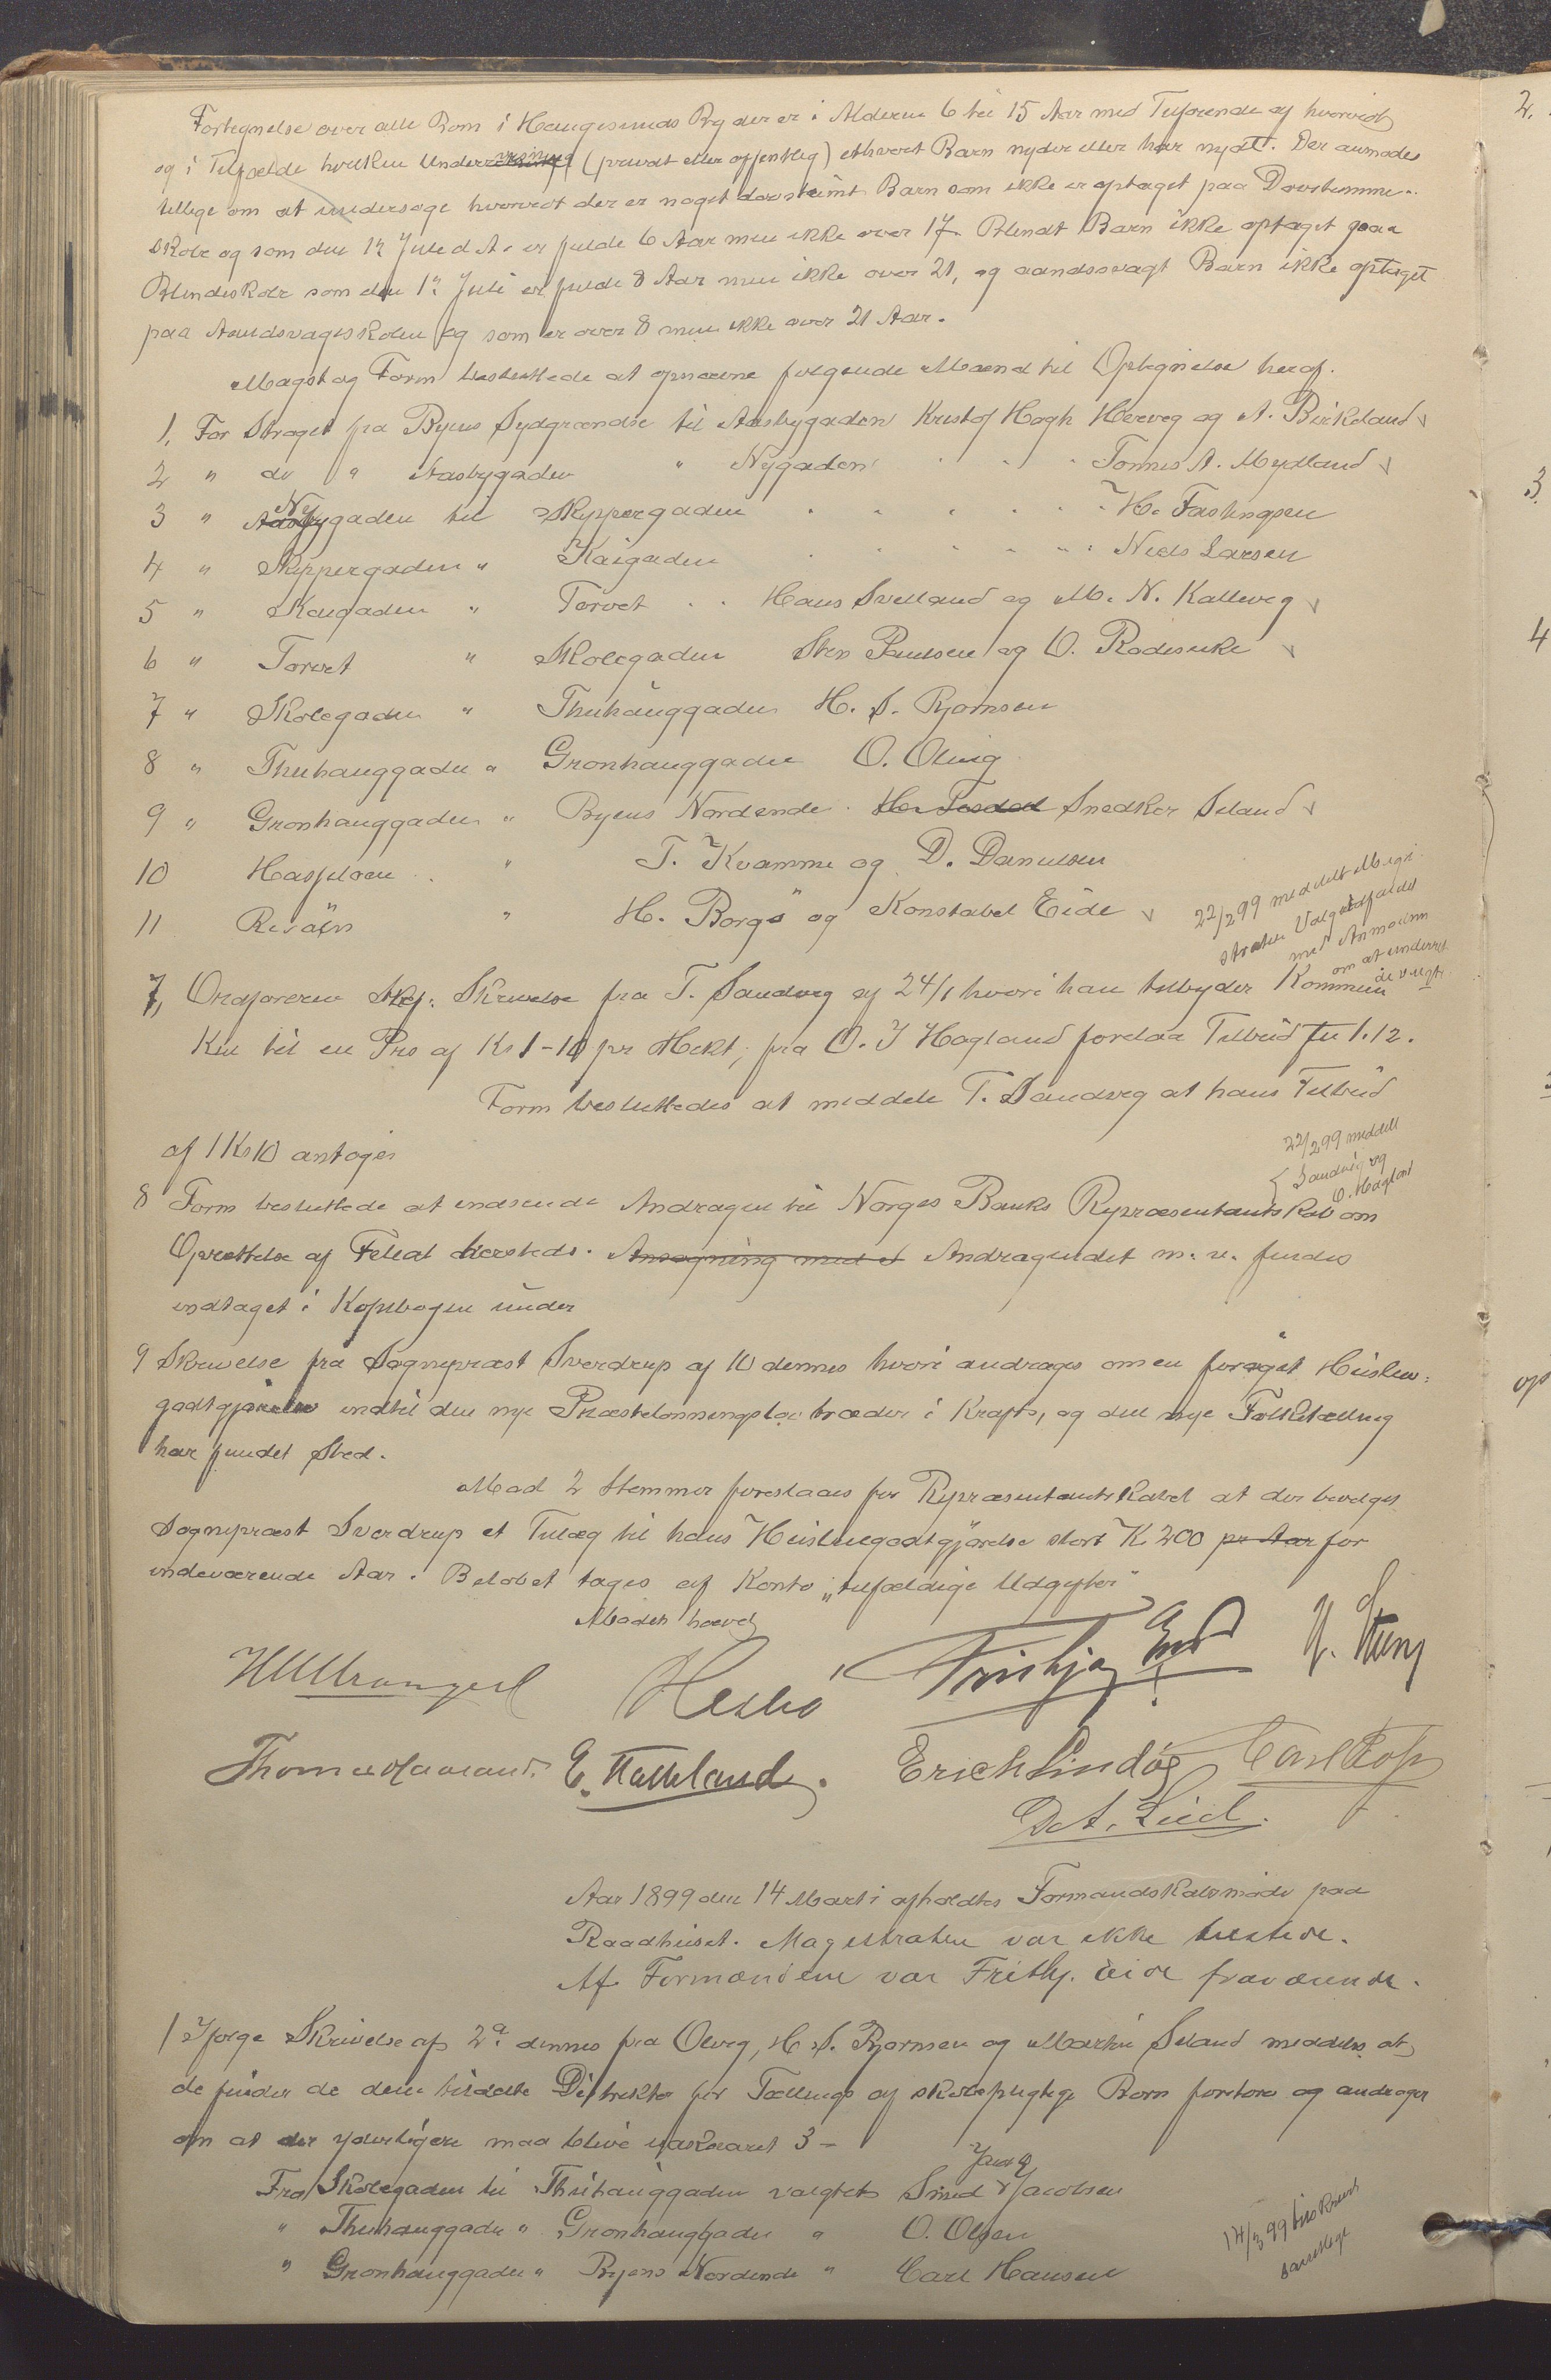 Fortegnelse over alle Born i Haugesunds By der er i Alderen 6 til 15 Aar med Tilforende af hvorvidt
og i Tilfælde hvilken Undervisning (privat eller offentlig) ethvert Barn nyder eller har nydt. Der anmodes
tillige om at undersøge hvorvidt der er noget dovstumt Barn som ikke er optaget paa Dovstumme-
skole og som den 1ste Juli d A. er fulde 6 Aar men ikke over 17. Blindt Barn ikke optaget paa
Blindeskole som den 1ste Juli er fulde 8 Aar men ikke over 21, og aandssvagt Barn ikke optaget
paa Aandsvageskolen og som er over 8 men ikke over 21 Aar.
Magst og Form besluttede at opnævne følgende Mænd til Optegnelse heraf.
1, For Strøget fra Byens Sydgrændse til Aasbygaden Kristof Hogh Herveg og A. Birkeland
2 " do " Aasbygaden " Nygaden Tonnes A. Mydland
3 " Nygaden til Skippergaden H. Fastingsen
4 " Skippergaden " Kaigaden Niels Larsen
5 " Kaigaden " Torvet Hans Svelland og M. N. Kalleveg
6 " Torvet " Skolegaden Sten Paulsen og O.
7 " Skolegaden " Thuhauggaden H. S. Bjornsen
8 " Thuhauggaden " Gronhauggaden O. Olveg
9 " Gronhauggaden " Byens Nordende Snedker Seland
10 Hasseloen " T. Kvamme og D. Danielsen
11 Risøen " H. Borgø og Konstabel Eide
22/2 99 meddelt Magi-
straten Valgets
med Anmodn
om at underret
de valgte.
7, Ordforeren Skrivelse fra T. Sandveg af 24/1 hvori han tilbyder Kommunen
Kul til en Pris af Kr 1-10 pr Hekt, fra O. J Hagland forelaa Tilbud til 1.12.
Form besluttedes at meddele T. Sandveg at hans Tilbud
af 1 Kr 10 antages
22/2 99 meddelt
Sandvig og
O. Hagland
8 Form besluttede at indsende Andragen til Norges Banks Repræsentantskab om
Oprettelse af Filial hersteds. Ansøgning med et Andragendet m. v. findes
indtaget i Kopibogen under
9 Skrivelse fra Sogneprest Sverdrup af 10 dennes hvori andrages om en forøget Huslen:
godtgjørelse indtil den nye Præstelonningslov træder i Kraft, og den nye Folketælling
har fundet Sted.
Mod 2 Stemmer foreslaaes for Repræsentantskabet at der bevilges
Sogneprest Sverdrup et Tillæg til hans Husleiegodtgjørelse stort K 200 pr Aar for
indeværende Aar. Beløbet tages af Konto "tilfældige Udgifter"
Mødet hævet
Thomas Haaland. E. Kalleland. Erich Lindøe
D. A. Lied.
Aar 1899 den 14 Marti afholdtes Formandskabsmøde paa
Raadhuset. Magistraten var ikke tilstede.
Af Formændene var Frithj. Eide fraværende.
1 Ifølge Skrivelse af 2d dennes fra Olveg, H S. Bjornsen og Martin Seland meddeles at
de finder de dem tildelte Distrikter for Tælling af skolepligtige Born forstore og andrager
om at der yderligere maa blive 3 -
Fra Skolegaden til Thuhauggaden valgtes Smed Jacobsen
" Thuhauggaden " Gronhauggaden " O. Olsen
" Gronhauggaden " Byens Nordende " Carl Hansen
14/3 99 tilskrevet
samtlige